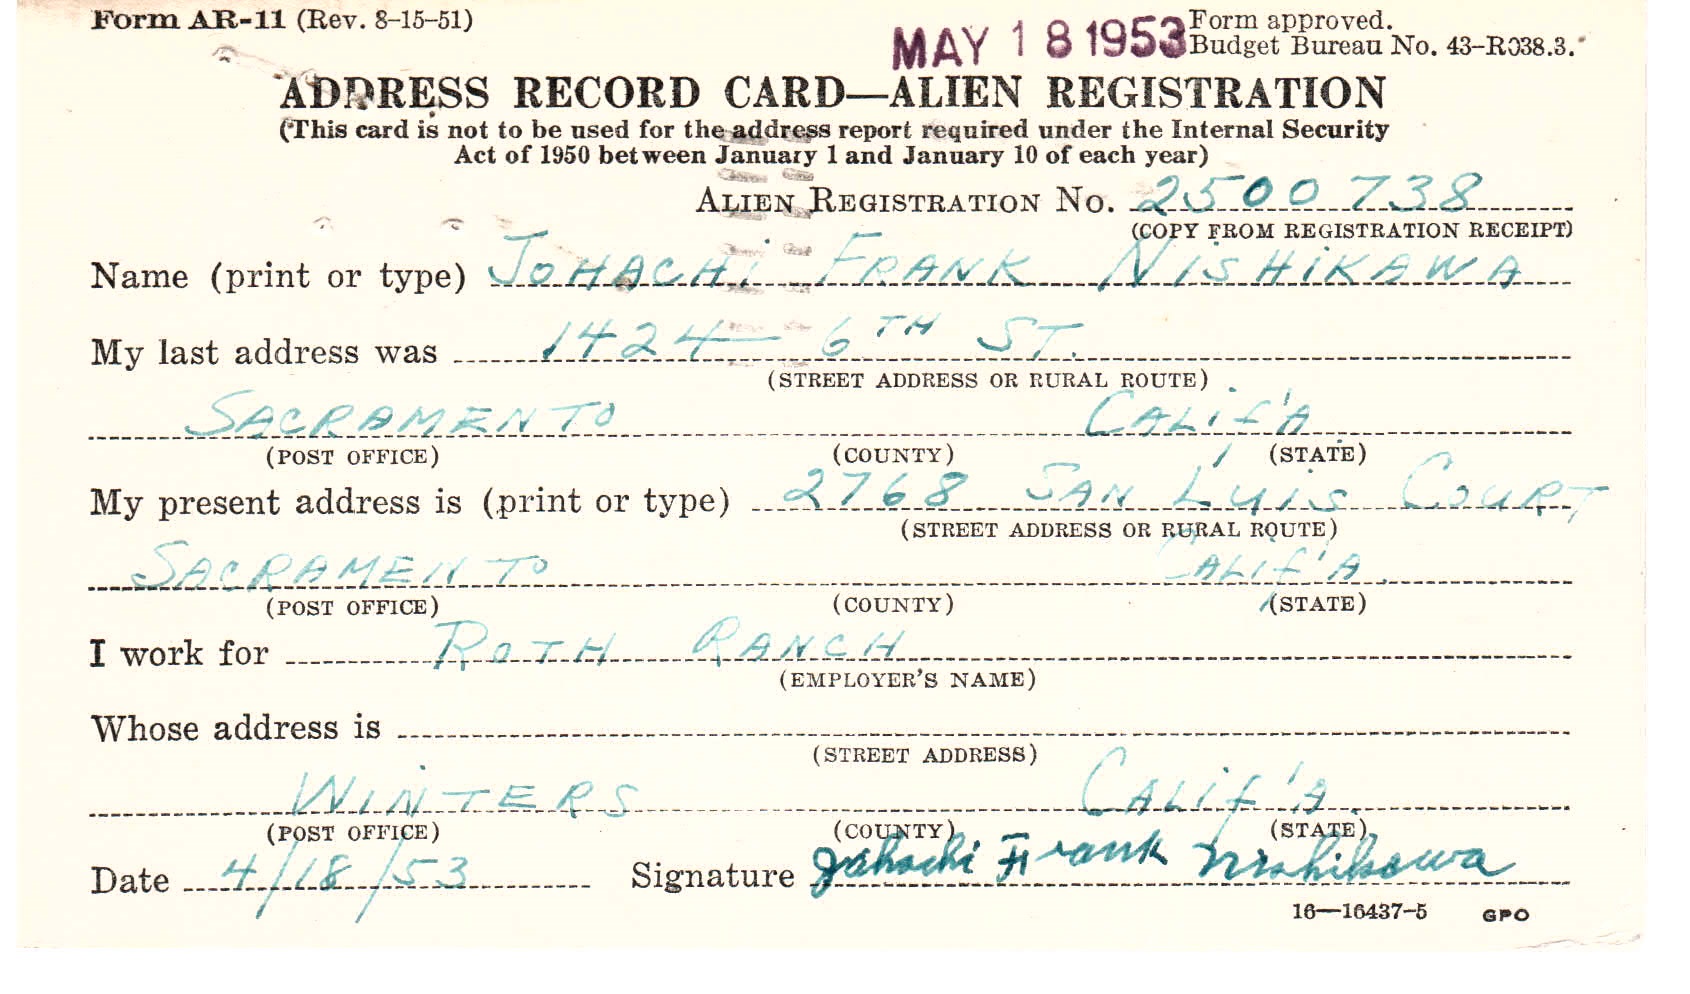 Form AR-11 (Rev. 8-15-51)
MAY 18 1953
Form approved.
Budget Bureau No. 43-R038.3.
ADDRESS RECORD CARD—ALIEN REGISTRATION
(This card is not to be used for the address report required under the Internal Security
Act of 1950 between January 1 and January 10 of each year)
ALIEN REGISTRATION No. 2500738
(COPY FROM REGISTRATION RECEIPT)
Name (print or type) JOHACHi FRANK NiSHiKAWA
My last address was 1424 — 6TH ST.
(STREET ADDRESS OR RURAL ROUTE)
SACRAMENTO CALif'A
(POST OFFICE) (COUNTY) (STATE)
My present address is (print or type) 2768 SAN LUiS COURT
(STREET ADDRESS OR RURAL ROUTE)
SACRAMENTO CALif'A.
(POST OFFICE) (COUNTY) (STATE)
I work for ROTH RANCH
(EMPLOYER'S NAME)
Whose address is
(STREET ADDRESS)
WiNTERS CALif'A.
(POST OFFICE) (COUNTY) (STATE)
Date 4/18/53 Signature Johachi Frank Nishikawa
16—16437-5 GPO